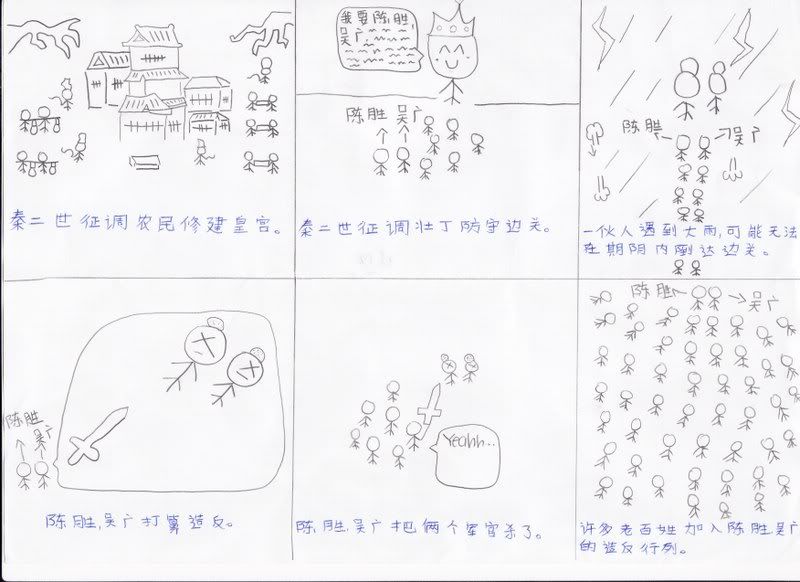 秦二世征调农民修建皇宫。
我要陈胜,
吴广,
陈胜 吴广
秦二世征调壮丁防守边关。
陈胜
吴广
一伙人遇到大雨,可能无法
在期限内到达边关。
陈胜
吴广
陈胜,吴广打算造反。
Yeahh..
陈胜,吴广把俩个军官杀了。
陈胜
吴广
许多老百姓加入陈胜,吴广
的造反行列。